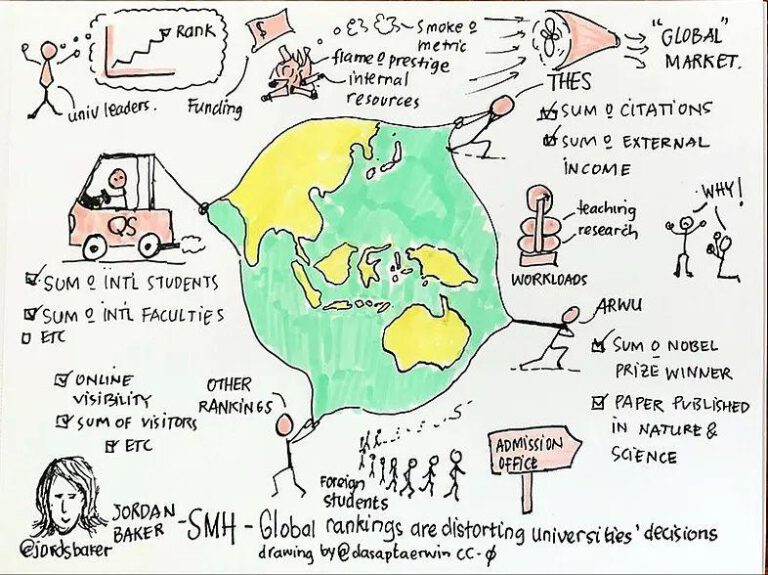 RANK
univ leaders.
Funding
$
smoke o
metric
flame o prestige
internal
resources
"GLOBAL"
MARKET.
THES
SUM o CITATIONS
SUM o EXTERNAL
INCOME
QS
SUM o INT'L STUDENTS
SUM o INT'L FACULTIES
ETC
teaching
research
WORKLOADS
WHY!
ARWU
SUM o NOBEL
PRIZE WINNER
PAPER PUBLISHED
IN NATURE &
SCIENCE
ONLINE
VISIBILITY
SUM OF VISITORS
ETC
OTHER
RANKINGS
Foreign
students
ADMISSION
OFFICE
JORDAN
BAKER
@jordsbaker
- SMH - Global rankings are distorting universities' decisions
drawing by @dasaptaerwin CC-0